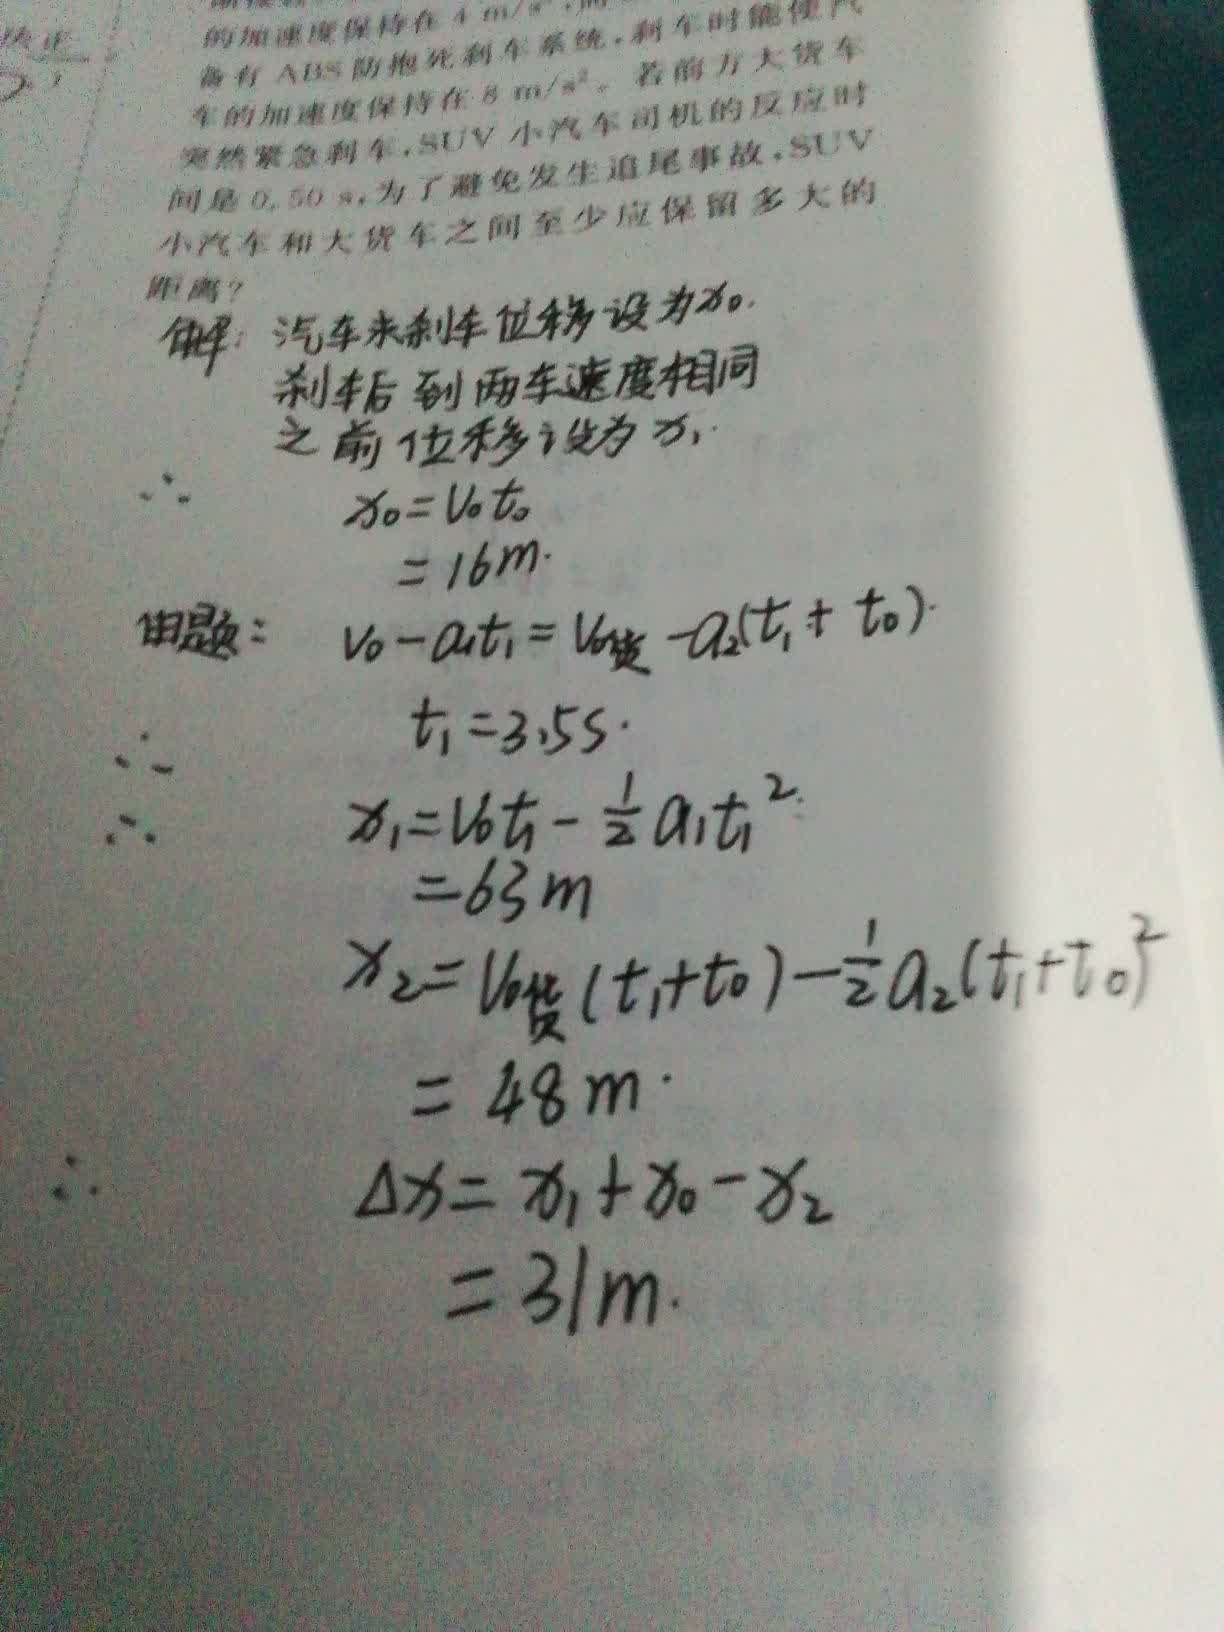 的加速度保持在 4 m/s²,而
备有 ABS 防抱死刹车系统,刹车时能使汽
车的加速度保持在 8 m/s²。若前方大货车
突然紧急刹车,SUV 小汽车司机的反应时
间是 0.50 s,为了避免发生追尾事故,SUV
小汽车和大货车之间至少应保留多大的
距离?
解: 汽车未刹车位移设为x₀.
刹车后到两车速度相同
之前位移设为x₁.
∴ x₀=V₀t₀
=16m.
由题: V₀-a₁t₁=V₀货-a₂(t₁+t₀).
∴ t₁=3.5s.
∴ x₁=V₀t₁-½a₁t₁².
=63m
x₂=V₀货(t₁+t₀)-½a₂(t₁+t₀)²
=48m.
∴ Δx=x₁+x₀-x₂
=31m.